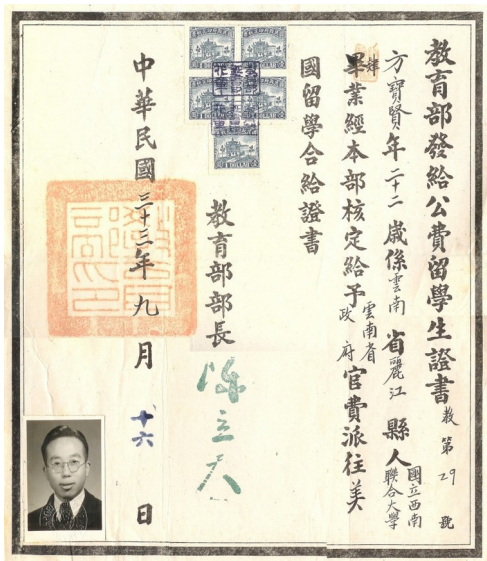 教育部發給公費留學生證書 教第29號
方寶賢年二十二歲係雲南省麗江縣人國立西南聯合大學
肄畢業經本部核定給予雲南省政府官費派往美
國留學合給證書
教育部部長 陳立夫
中華民國三十三年九月十六日